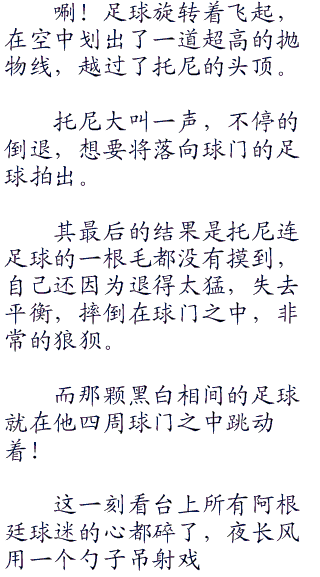 唰！足球旋转着飞起，
在空中划出了一道超高的抛
物线，越过了托尼的头顶。
托尼大叫一声，不停的
倒退，想要将落向球门的足
球拍出。
其最后的结果是托尼连
足球的一根毛都没有摸到，
自己还因为退得太猛，失去
平衡，摔倒在球门之中，非
常的狼狈。
而那颗黑白相间的足球
就在他四周球门之中跳动
着！
这一刻看台上所有阿根
廷球迷的心都碎了，夜长风
用一个勺子吊射戏